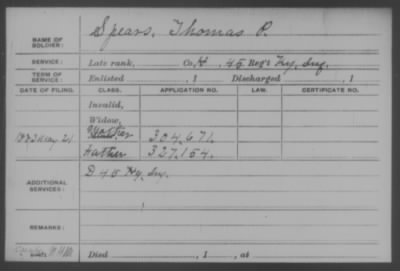 NAME OF SOLDIER: Spears, Thomas P.
SERVICE: Late rank, Co. H, 45 Reg't Ky. Inf.
TERM OF SERVICE: Enlisted , 1 Discharged , 1
DATE OF FILING. CLASS. APPLICATION NO. LAW. CERTIFICATE NO.
Invalid,
Widow,
Mother 304,671.
Father 327,154.
ADDITIONAL SERVICES: D 40 Ky. Inf.
REMARKS:
Died , 1 , at